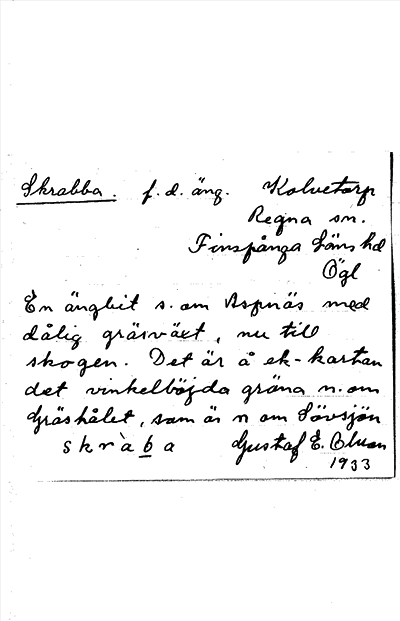 Skrabba. f.d. äng. Kolvetorp
Regna sn.
Finspånga läns hd
Ögl
En ängbit s. om Aspnäs med
dålig gräsväxt, nu till
skogen. Det är å ek-kartan
det vinkelböjda gröna n. om
Gräshålet, som är n om Lövsjön
skràba Gustaf E. Olson
1933